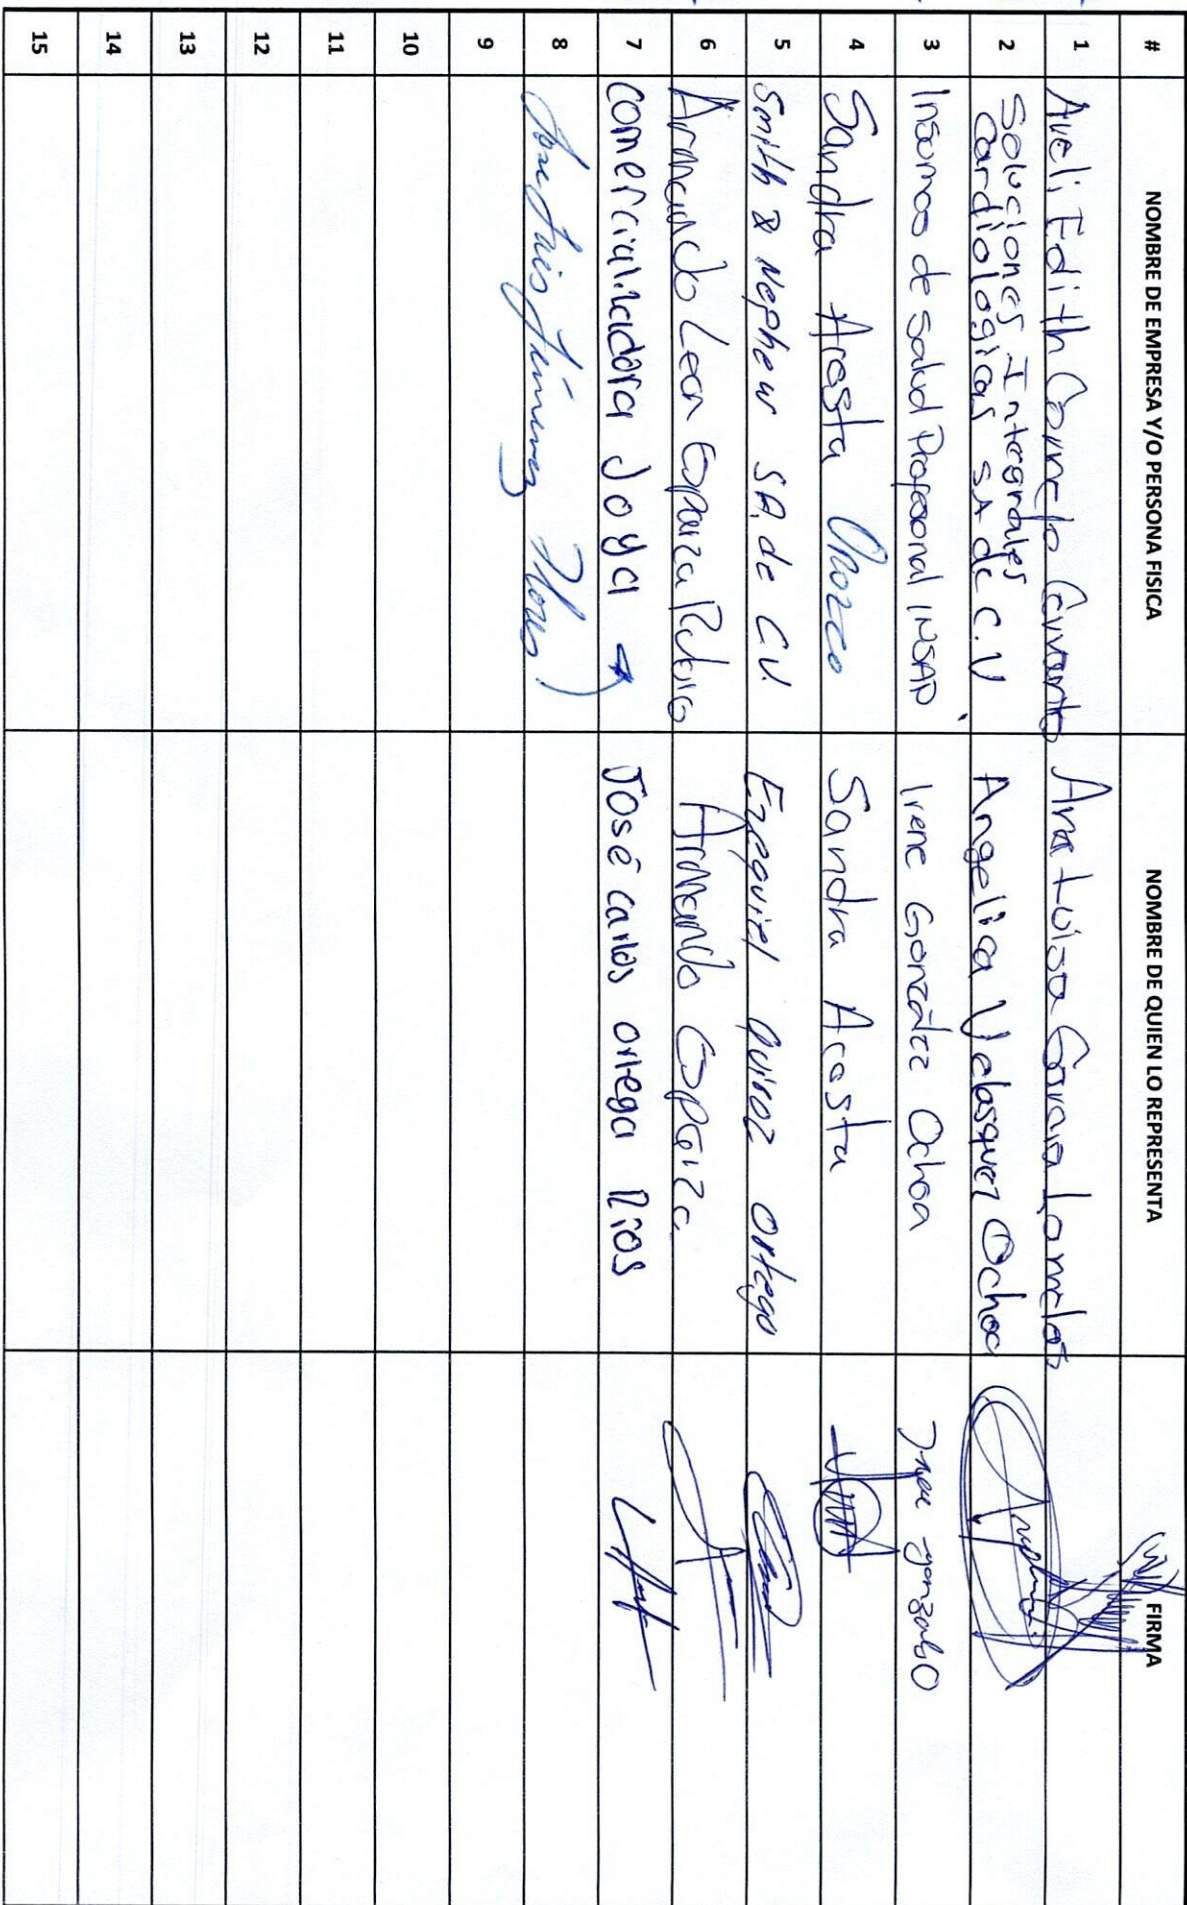 # NOMBRE DE EMPRESA Y/O PERSONA FISICA NOMBRE DE QUIEN LO REPRESENTA FIRMA
1 Edith Cornelo Ana Luisa Garcia Lomelas
2 Soluciones Integrales
Cardiologicas SA de C.V Angelica Velasquez Ochoa
3 Insumos de Salud Profesional INSAP Irene González Ochoa Irene
4 Sandra Acosta Orozco Sandra Acosta
5 Smith & Nephew SA. de C.V. Ezequiel Quiroz Ortega
6 Armando Leon Esparza Rubio Armando Esparza
7 Comercializadora Joya → José Carlos ortega Rios
8 Jose Luis Jiménez Flores)
9
10
11
12
13
14
15